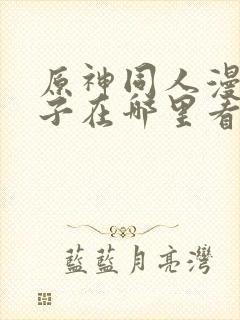 原神同人漫
子在哪里看
藍藍月亮灣